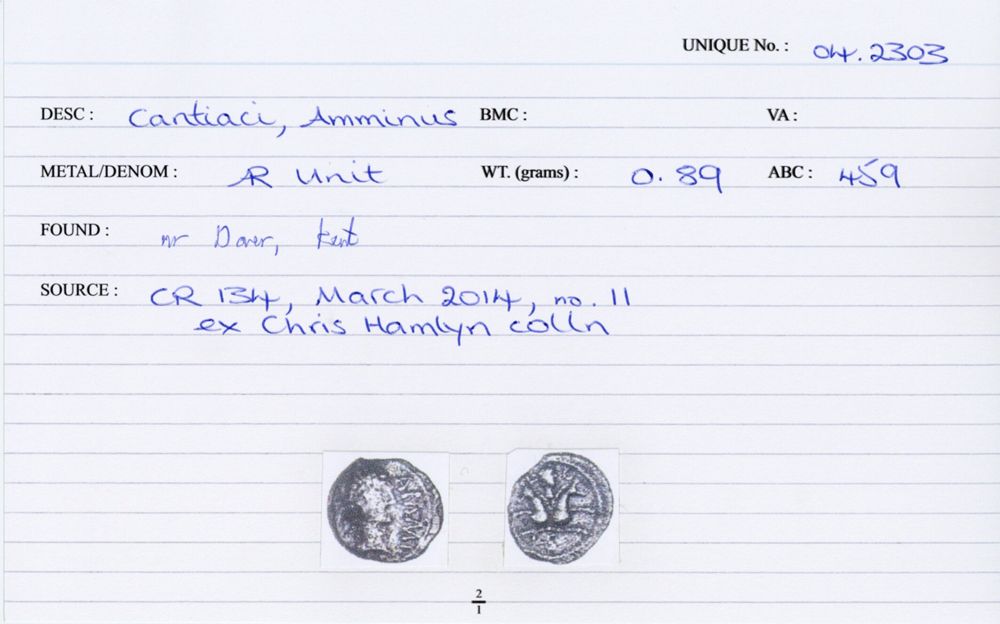 UNIQUE No. : 04.2303
DESC : Cantiaci, Amminus BMC : VA :
METAL/DENOM : AR Unit WT. (grams) : 0.89 ABC : 459
FOUND : nr Dover, Kent
SOURCE : CR 134, March 2014, no. 11
ex Chris Hamlyn colln
2
1